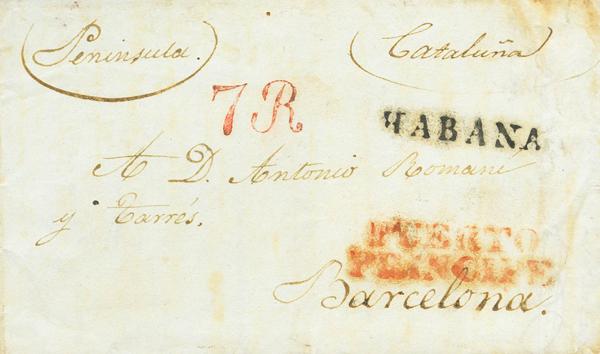 Península.
Cataluña
7 R
HABANA
A D. Antonio Romaní
y Tarrés.
PUERTO
PRINCIPE
Barcelona.